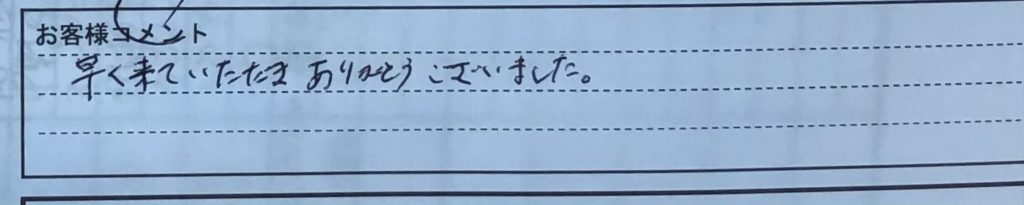 お客様コメント
早く来ていただきありがとうございました。